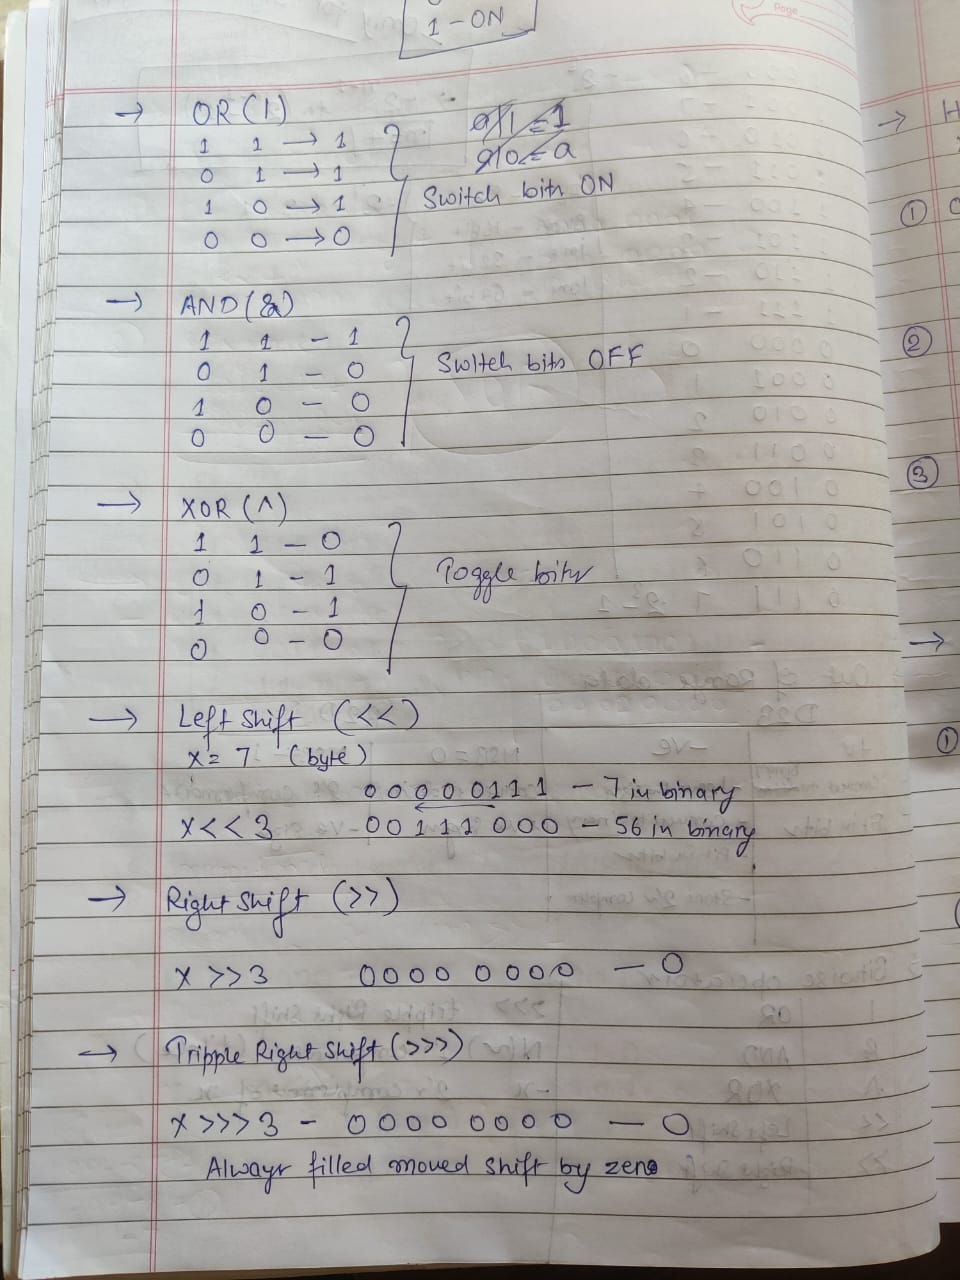 Page
1 - ON
→ OR (|)
1 1 → 1
0 1 → 1
1 0 → 1
0 0 → 0
a|1 = 1
a|0 = a
Switch bits ON
→ AND (&)
1 1 - 1
0 1 - 0
1 0 - 0
0 0 - 0
Switch bits OFF
→ XOR (^)
1 1 - 0
0 1 - 1
1 0 - 1
0 0 - 0
Toggle bits
→ Left Shift (<<)
x = 7 (byte)
0 0 0 0 0 1 1 1 - 7 in binary
x<<3 0 0 1 1 1 0 0 0 - 56 in binary
→ Right Shift (>>)
x >>3 0000 0000 - 0
→ Tripple Right Shift (>>>)
x >>>3 - 0000 0000 - 0
Always filled moved shift by zero
→ H
① 
②
③
→
①